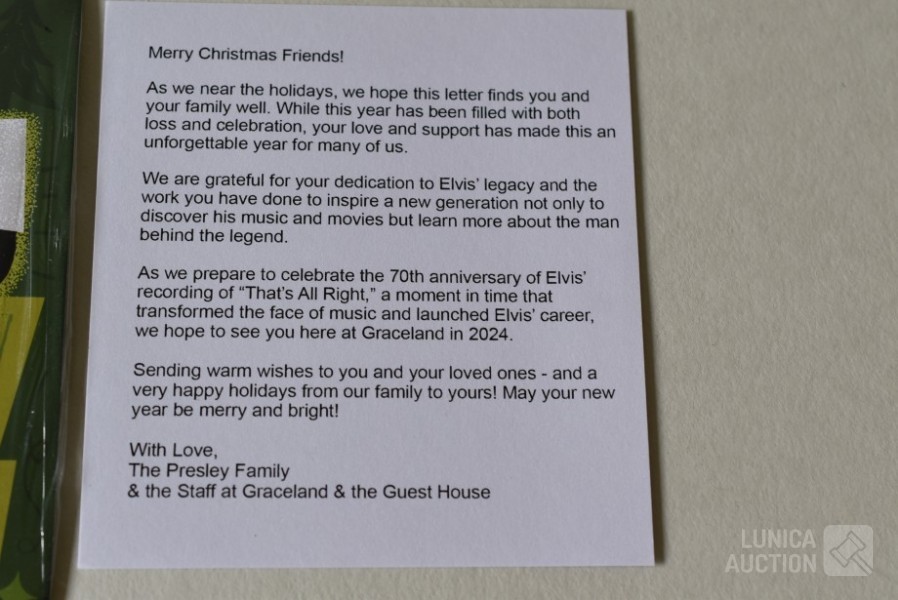 Merry Christmas Friends!
As we near the holidays, we hope this letter finds you and
your family well. While this year has been filled with both
loss and celebration, your love and support has made this an
unforgettable year for many of us.
We are grateful for your dedication to Elvis’ legacy and the
work you have done to inspire a new generation not only to
discover his music and movies but learn more about the man
behind the legend.
As we prepare to celebrate the 70th anniversary of Elvis’
recording of “That’s All Right,” a moment in time that
transformed the face of music and launched Elvis’ career,
we hope to see you here at Graceland in 2024.
Sending warm wishes to you and your loved ones - and a
very happy holidays from our family to yours! May your new
year be merry and bright!
With Love,
The Presley Family
& the Staff at Graceland & the Guest House
LUNICA
AUCTION